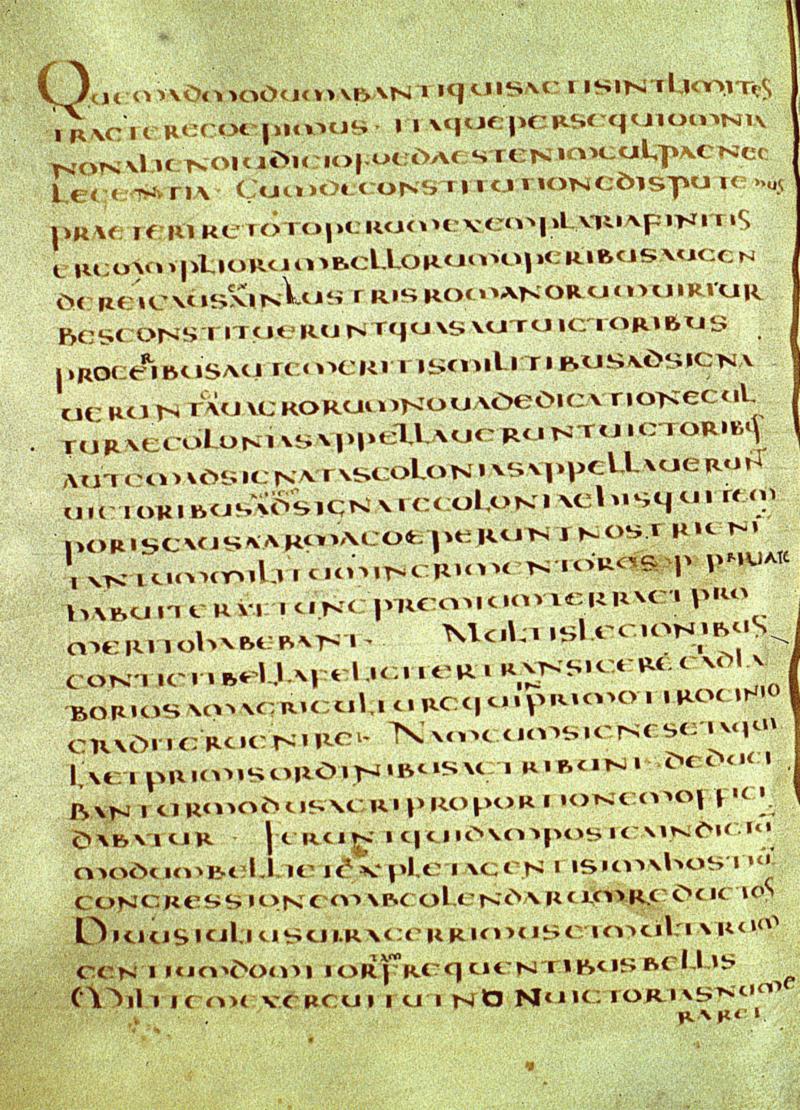 Quemadmodumabantiquisactisintlimites
tracterecoepimus· itaquepersequiomnia
nonalienoiudiciofoedaestenimculpaenec
legentia· Cumdeconstitutionedisputemus
praeteriretotoperumexemplariafinitis
ergoampliorumbellorumoperibusaugen
dereicausaexinlustrisromanorumuiriur
besconstitueruntquasautuictoribus
proceribusautemeritismilitibusadsigna
ueruntaduagrorumnouadedicationecul
turaecoloniasappellaueruntuictoribus
autemadsignatascoloniasappellauerunt
uictoribusautemadsignateecoloniaehisquitem
poriscausaarmacoeperuntnostrieni
tantummilitumincrimentores p priuate
habuiteruttuncpremiumterraetpro
meritohabebant· Multislegionibus
contigitbellafelicitertransigereetadla
boriosamagriculturequiinprimotirocinio
gradueruenire· Namcumsignesetaqui
laetprimisordinibusactribuni· deduci
banturmodusagriproportionemoffici
dabatur· feruntquidamposteaindictam
modumbelliet expletagentisimahostium
congressionemabcolendarumreductos
Diuusiuliusuiracerrimusetmultarum
gentiumdomitortamfrequentibusbellis
Militemexercuitutnonuictoriasnume
raret